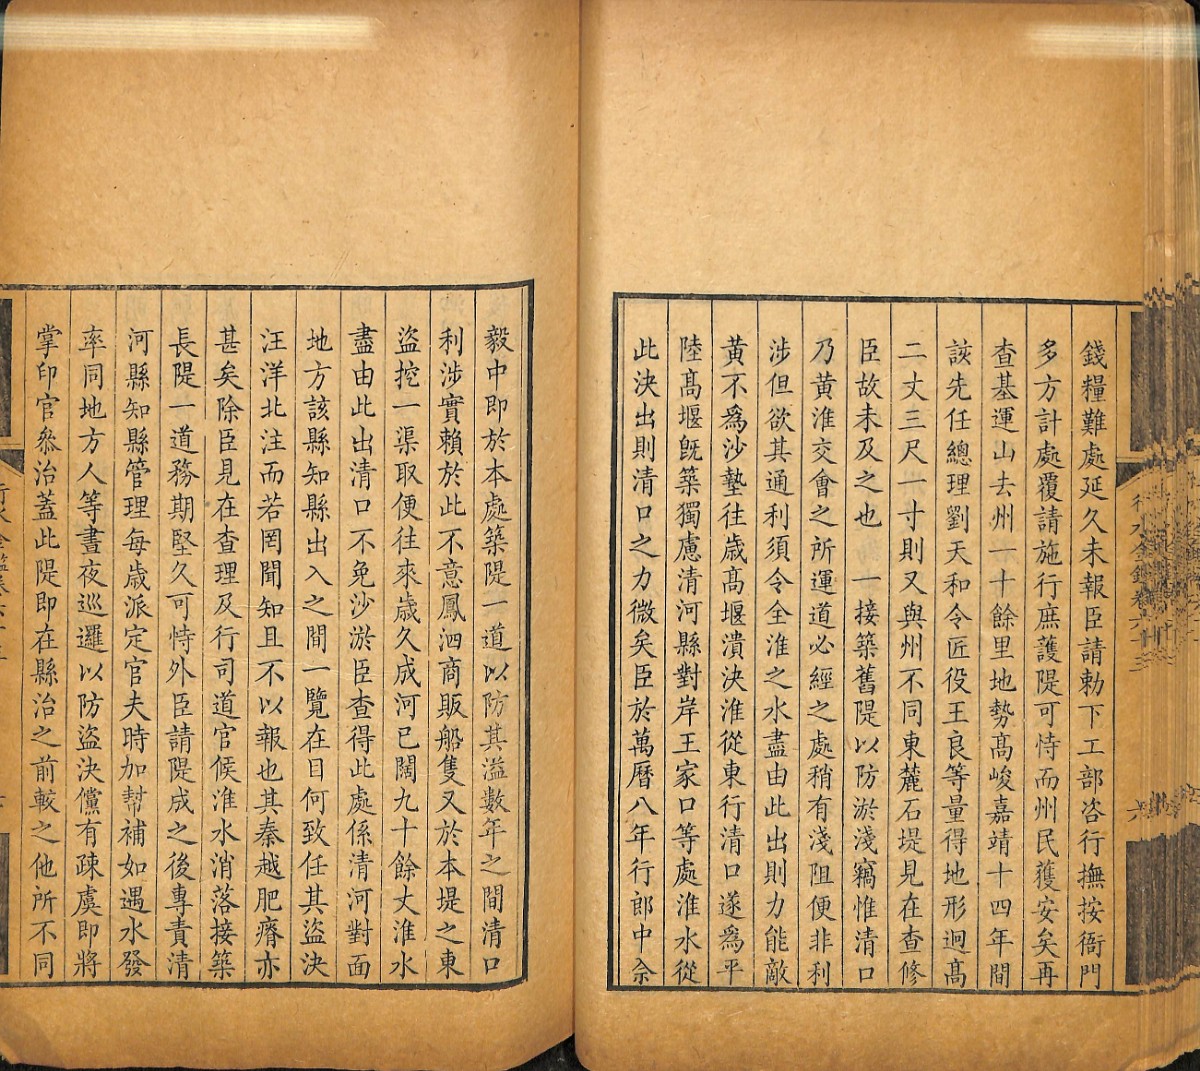 錢糧難處延久未報臣請勅下工部咨行撫按衙門
多方計處覆請施行庶護隄可恃而州民獲安矣再
查基運山去州一十餘里地勢髙峻嘉靖十四年間
該先任總理劉天和令匠役王良等量得地形迥髙
二丈三尺一寸則又與州不同東麓石堤見在查修
臣故未及之也一接築舊隄以防淤淺竊惟清口
乃黃淮交會之所運道必經之處稍有淺阻便非利
涉但欲其通利須令全淮之水盡由此出則力能敵
黃不爲沙墊往歲髙堰潰決淮從東行清口遂爲平
陸髙堰旣築獨慮清河縣對岸王家口等處淮水從
此決出則清口之力微矣臣於萬曆八年行郎中佘
毅中即於本處築隄一道以防其溢數年之間清口
利涉實賴於此不意鳳泗商販船隻又於本堤之東
盜挖一渠取便往來歲久成河已闊九十餘丈淮水
盡由此出清口不免沙淤臣查得此處係清河對面
地方該縣知縣出入之間一覽在目何致任其盜決
汪洋北注而若罔聞知且不以報也其秦越肥瘠亦
甚矣除臣見在查理及行司道官候淮水消落接築
長隄一道務期堅久可恃外臣請隄成之後專責清
河縣知縣管理每歲派定官夫時加幇補如遇水發
率同地方人等晝夜巡邏以防盜決儻有疎虞即將
掌印官叅治蓋此隄即在縣治之前較之他所不同